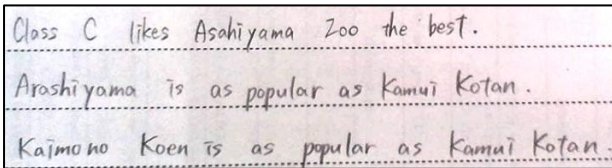 Class C likes Asahiyama Zoo the best.
Arashiyama is as popular as Kamui Kotan.
Kaimono Koen is as popular as Kamui Kotan